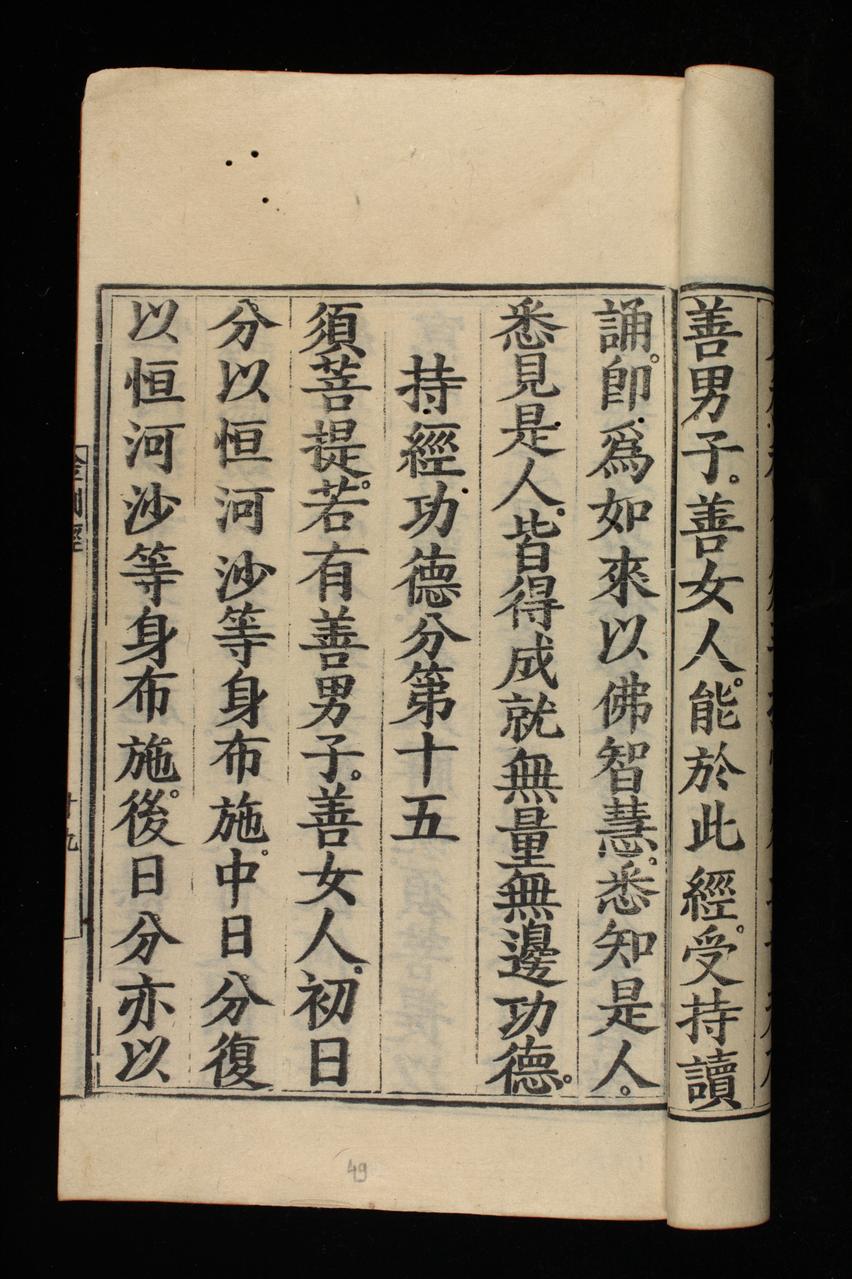 善男子。善女人。能於此經。受持讀
誦。卽爲如來以佛智慧。悉知是人。
悉見是人。皆得成就無量無邊功德。
持經功德分第十五
須菩提。若有善男子。善女人。初日
分。以恒河沙等身布施。中日分。復
以恒河沙等身布施。後日分亦以
金剛經
十九
49